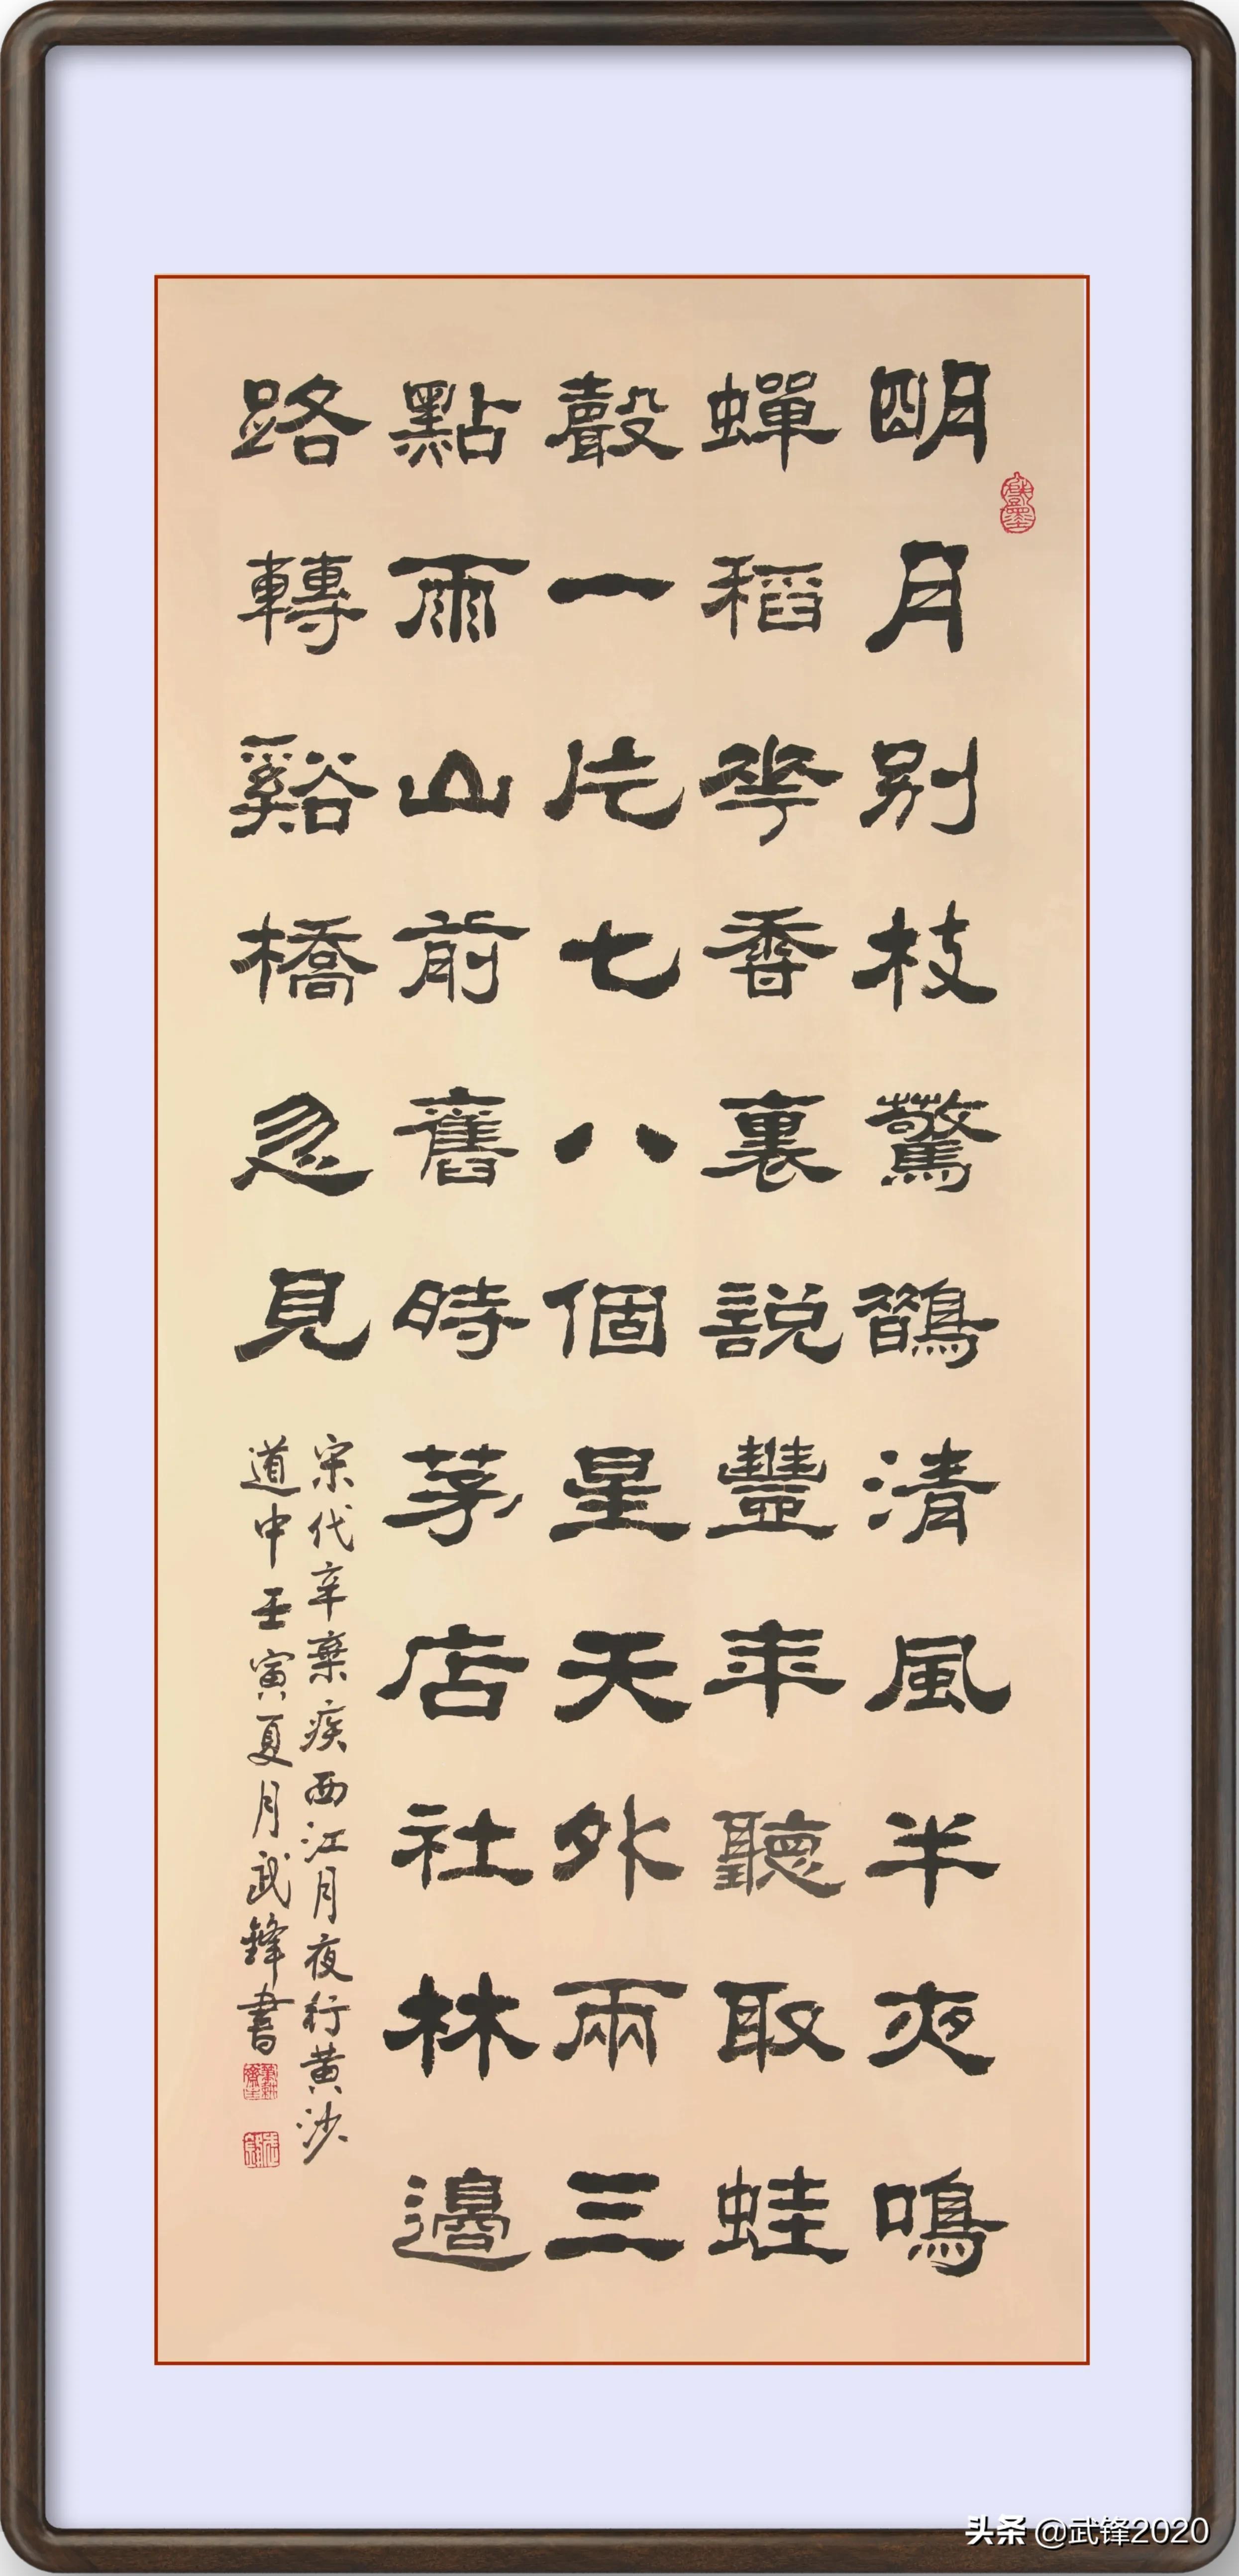 明月別枝驚鵲清風半夜鳴
蟬稻華香裏説豐年聽取蛙
聲一片七八個星天外兩三
點雨山前舊時茅店社林邊
路轉谿橋忽見
宋代辛棄疾西江月夜行黄沙
道中壬寅夏月武鋒書
头条 @武锋2020